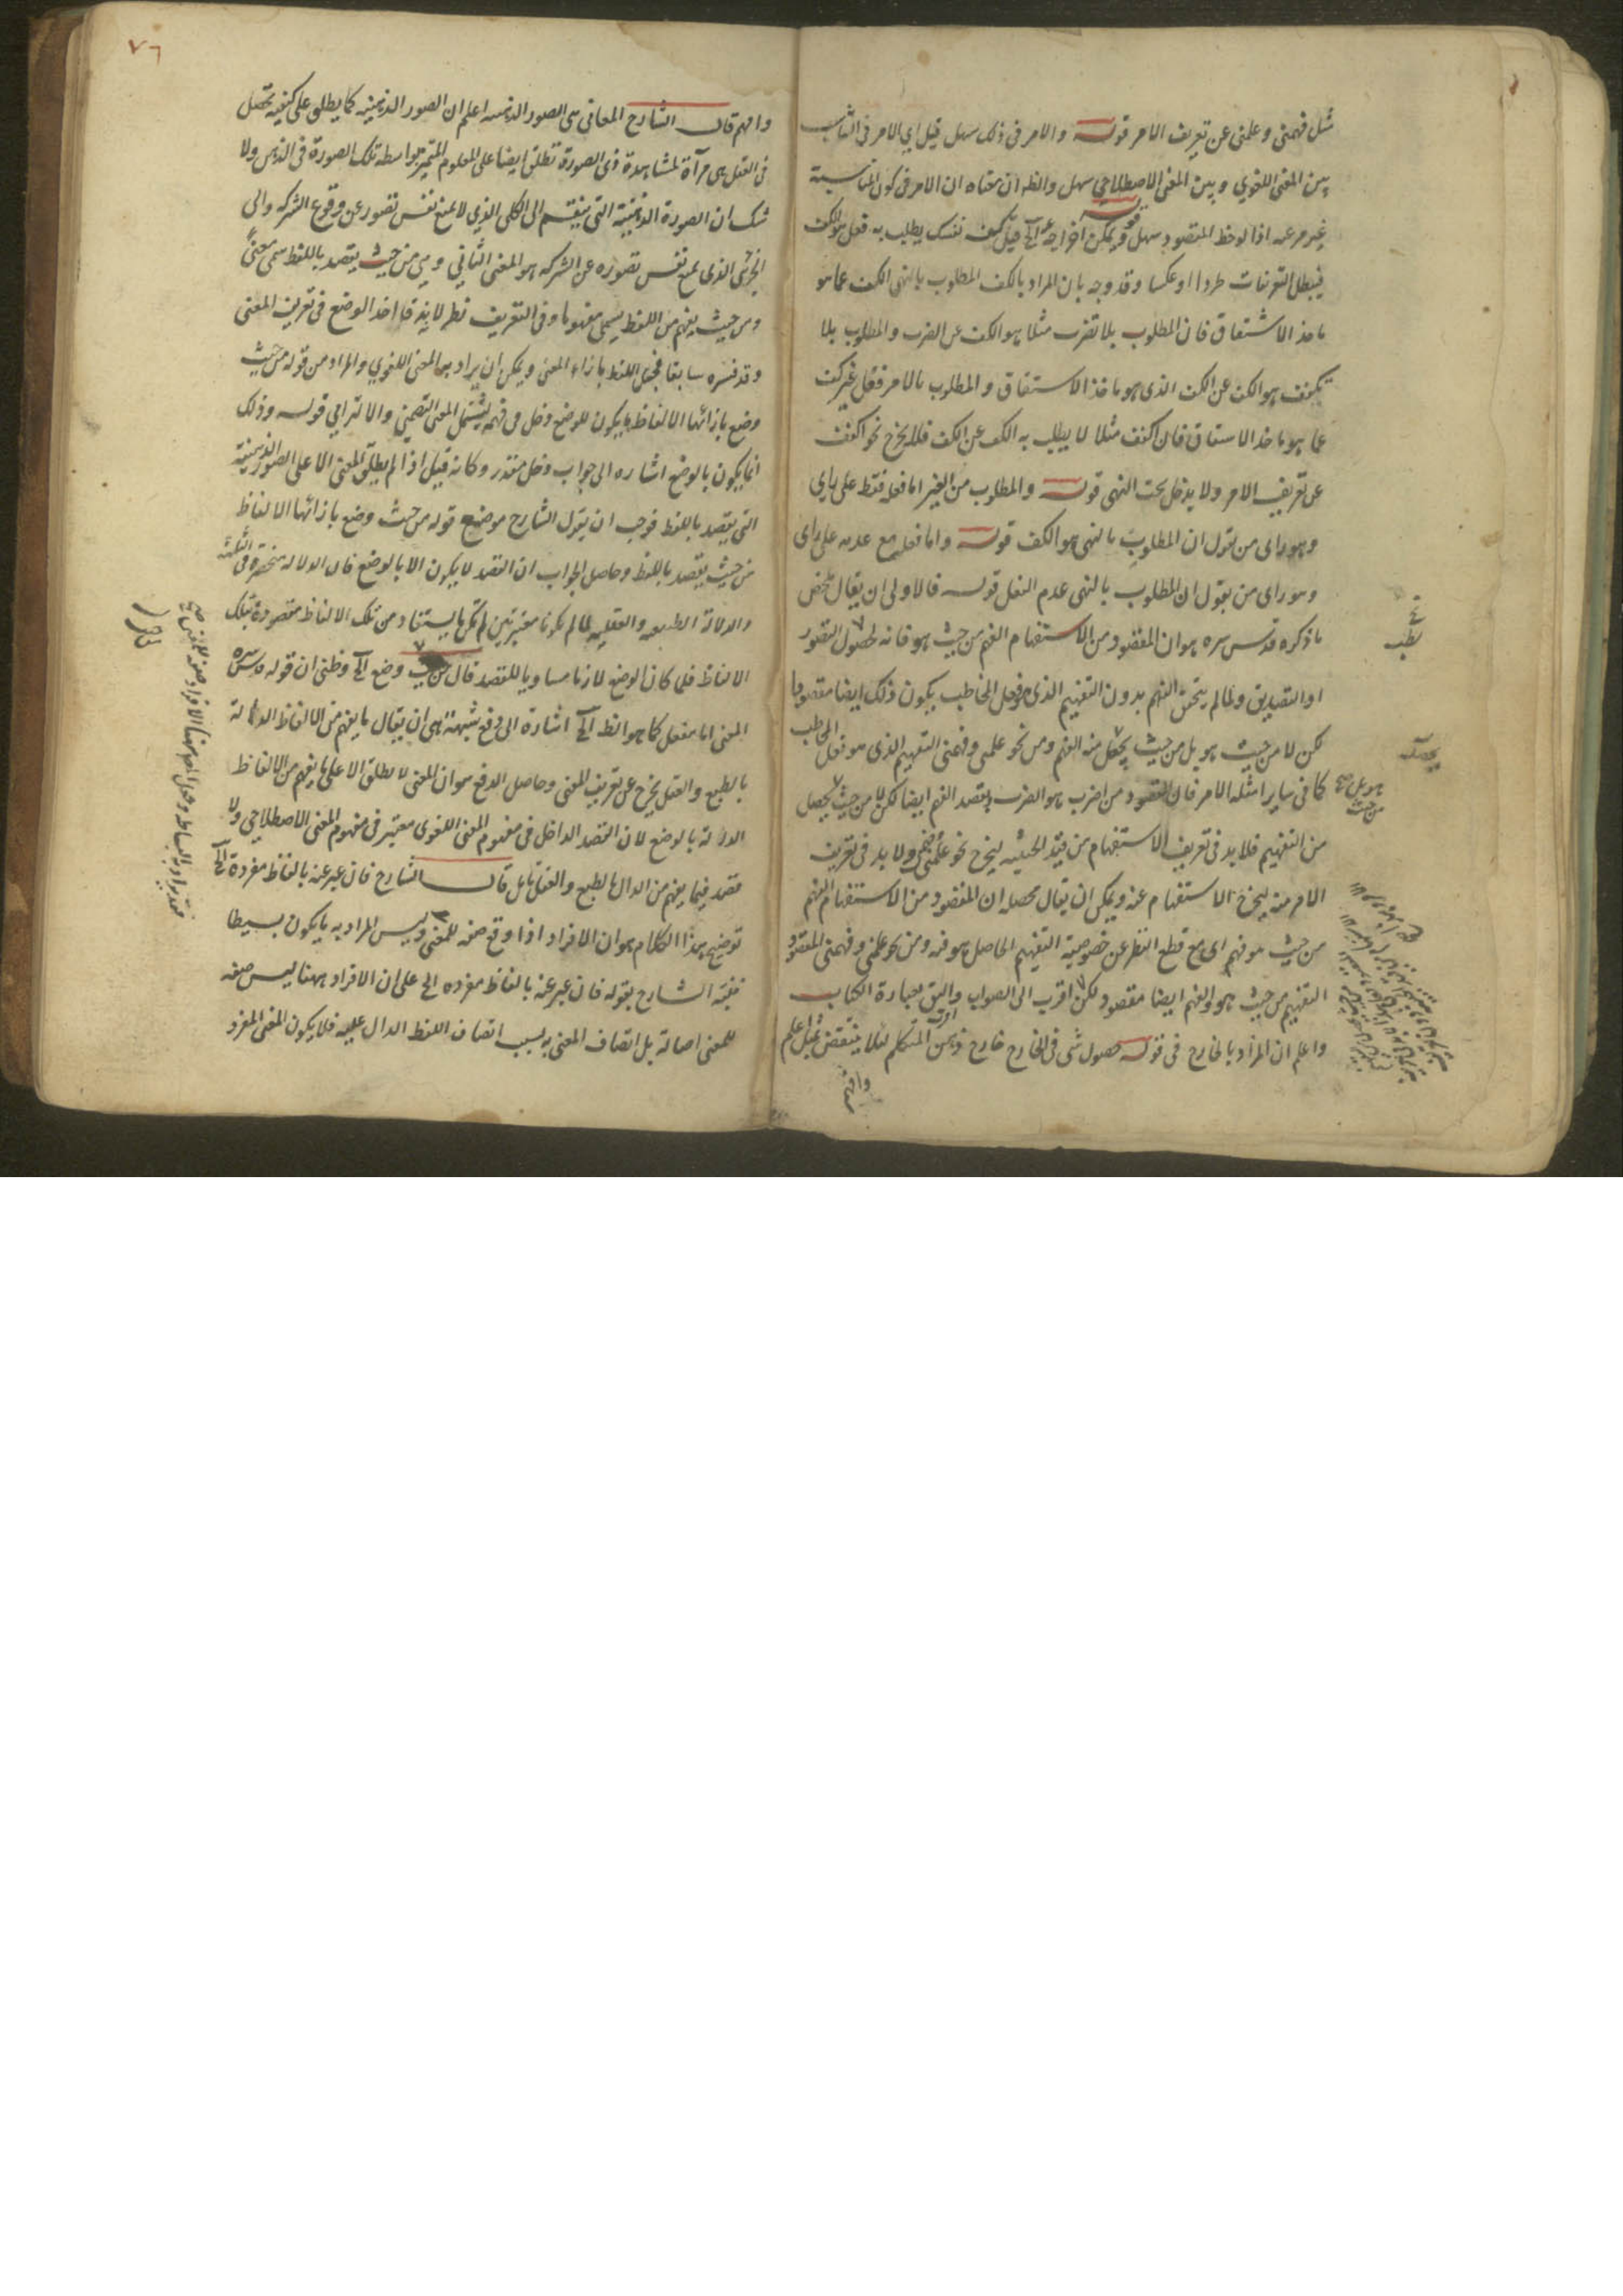 مثل فهمنى وعلمنى عن تعريف الامر قوله والامر فى ذلك سهل قيل اي الامر فى التناسب
بين المعنى اللغوي وبين المعنى الاصطلاحي سهل والظ ان معناه ان الامر فى كون المناسبة
غير مرعيه اذا لوحظ المقصود سهل قوله ويمكن اخراجه الخ قيل كف نفسك يطلب به فعل هو الكف
فيبطل التعريفات طردا او عكسا وقد وجه بان المراد بالكف المطلوب بالنهى الكف عما هو
ماخذ الاشتقاق فان المطلوب بلا تضرب مثلا هو الكف عن الضرب والمطلوب بلا
تكفف هو الكف عن الكف الذى هو ماخذ الاشتقاق والمطلوب بالامر فعل غير كف
عما هو ماخذ الاشتقاق فان اكفف مثلا لا يطلب به الكف عن الكف فلا يخرج نحو اكفف
عن تعريف الامر ولا يدخل تحت النهى قوله والمطلوب من الغير اما فعله فقط على راى
وهو راى من يقول ان المطلوب بالنهى هو الكف قوله واما فعله مع عدمه على راى
وهو راى من يقول ان المطلوب بالنهى عدم الفعل قوله فالاولى ان يقال ملخص
ما ذكره قدس سره هو ان المقصود من الاستفهام الفهم من حيث هو فانه لحصول التصور
او التصديق ولما لم يتحقق الفهم بدون التفهيم الذى هو فعل المخاطب يكون ذلك ايضا مقصودا
لكن لا من حيث هو بل من حيث يحصل منه الفهم ومن نحو علمنى وفهمنى التفهيم الذى هو فعل المخاطب
كما فى ساير امثله الامر فان المقصود من اضرب هو الضرب ويقصد الفهم ايضا لكن لا من حيث يحصل
من التفهيم فلا بد فى تعريف الاستفهام من قيد الحيثيه ليخرج نحو علمنى وفهمنى ولا بد فى تعريف
الامر منه ليخرج الاستفهام عنه ويمكن ان يقال محصله ان المقصود من الاستفهام الفهم
من حيث هو فهم اى مع قطع النظر عن خصوصية التفهيم الحاصل هو منه ومن نحو علمنى وفهمنى المقصود
التفهيم من حيث هو والفهم ايضا مقصود لكن اقرب الى الصواب واليق بعبارة الكتاب
واعلم ان المراد بالخارج فى قوله حصول شى فى الخارج خارج ذهن المتكلم لئلا ينتقض بمثل اعلم
وافهم
٧٦
وافهم قال الشارح المعانى هى الصور الذهنيه اعلم ان الصور الذهنيه كما يطلق على كيفية تحصل
فى العقل هى مرآة لمشاهدة ذى الصورة تطلق ايضا على المعلوم المتميز بواسطة تلك الصورة فى الذهن ولا
شك ان الصورة الذهنية التى ينقسم الى الكلى الذي لا يمنع نفس تصوره عن وقوع الشركه والى
الجزئى الذى يمنع نفس تصوره عن الشركه هو المعنى الثاني وهى من حيث يقصد باللفظ سمى معنى
ومن حيث يفهم من اللفظ يسمى مفهوما وفى التعريف نظر لانه قد اخذ الوضع فى تعريف المعنى
وقد فسره سابقا بجعل اللفظ بازاء المعنى ويمكن ان يراد به المعنى اللغوي والمراد من قوله من حيث
وضع بازائها الالفاظ ما يكون للوضع دخل فى فهمه ليشتمل المعنى التضمنى والالتزامي قوله وذلك
انما يكون بالوضع اشاره الى جواب دخل مقدر وكانه قيل اذا لم يطلق المعنى الا على الصور الذهنية
التى يقصد باللفظ فوجب ان يقول الشارح موضع قوله من حيث وضع بازائها الالفاظ
من حيث يقصد باللفظ وحاصل الجواب ان القصد لا يكون الا بالوضع فان الدلاله منحصرة فى الثلثة
والدلالة الطبيعيه والعقليه لما لم تكونا معتبرتين لم تكن ما يستفاد من تلك الالفاظ مقصودة بتلك
الالفاظ فلما كان الوضع لازما مساويا للقصد قال من حيث وضع الخ وظنى ان قوله قدس سره
المعنى اما مفعل كما هو الظ الخ اشارة الى دفع شبهة هى ان يقال ما يفهم من الالفاظ الدالة
بالطبع والعقل يخرج عن تعريف المعنى وحاصل الدفع هو ان المعنى لا يطلق الا على ما يفهم من الالفاظ
الدالة بالوضع لان القصد الداخل فى مفهوم المعنى اللغوى معتبر فى مفهوم المعنى الاصطلاحي ولا
قصد فيما يفهم من الدال بالطبع والعقل تامل قال الشارح فان عبر عنه بالفاظ مفردة الخ
توضيح هذا الكلام هو ان الافراد اذا وقع صفه للمعنى وليس المراد به ما يكون بسيطا
فنبه الشارح بقوله فان عبر عنه بالفاظ مفرده الخ على ان الافراد ههنا ليس صفه
للمعنى اصالة بل اتصاف المعنى به بسبب اتصاف اللفظ الدال عليه فلا يكون المعنى المفرد